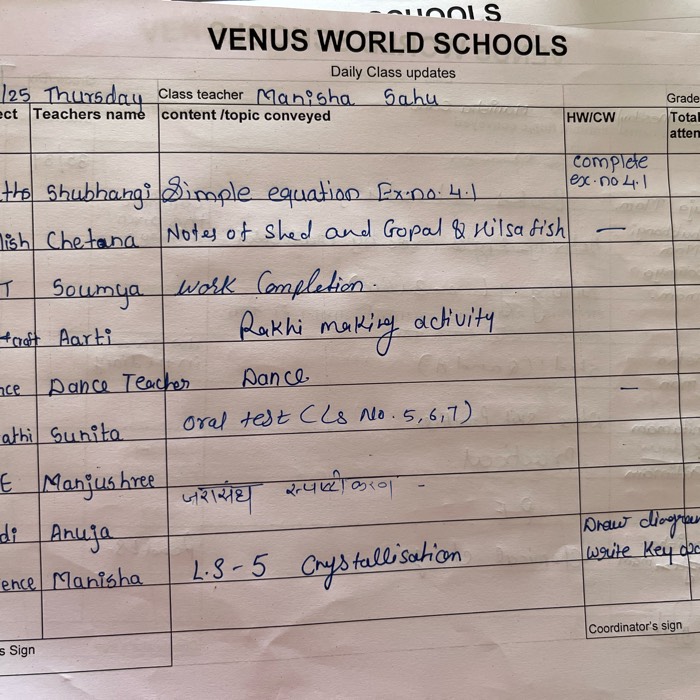 VENUS WORLD SCHOOLS
Daily Class updates
/25 Thursday Class teacher Manisha Sahu Grade
ect Teachers name content /topic conveyed HW/CW Total atten
ths Shubhangi Simple equation Ex.no. 4.1 complete ex.no 4.1
lish Chetana Notes of Shed and Gopal & Hilsa fish —
T Soumya work Completion.
craft Aarti Rakhi making activity
nce Dance Teacher Dance —
athi Sunita Oral test (Ls No. 5,6,7)
E Manjushree
di Anuja जरासंध स्पष्टीकरण -
ence Manisha L.S-5 Crystallisation Draw diagram write Key
s Sign Coordinator's sign